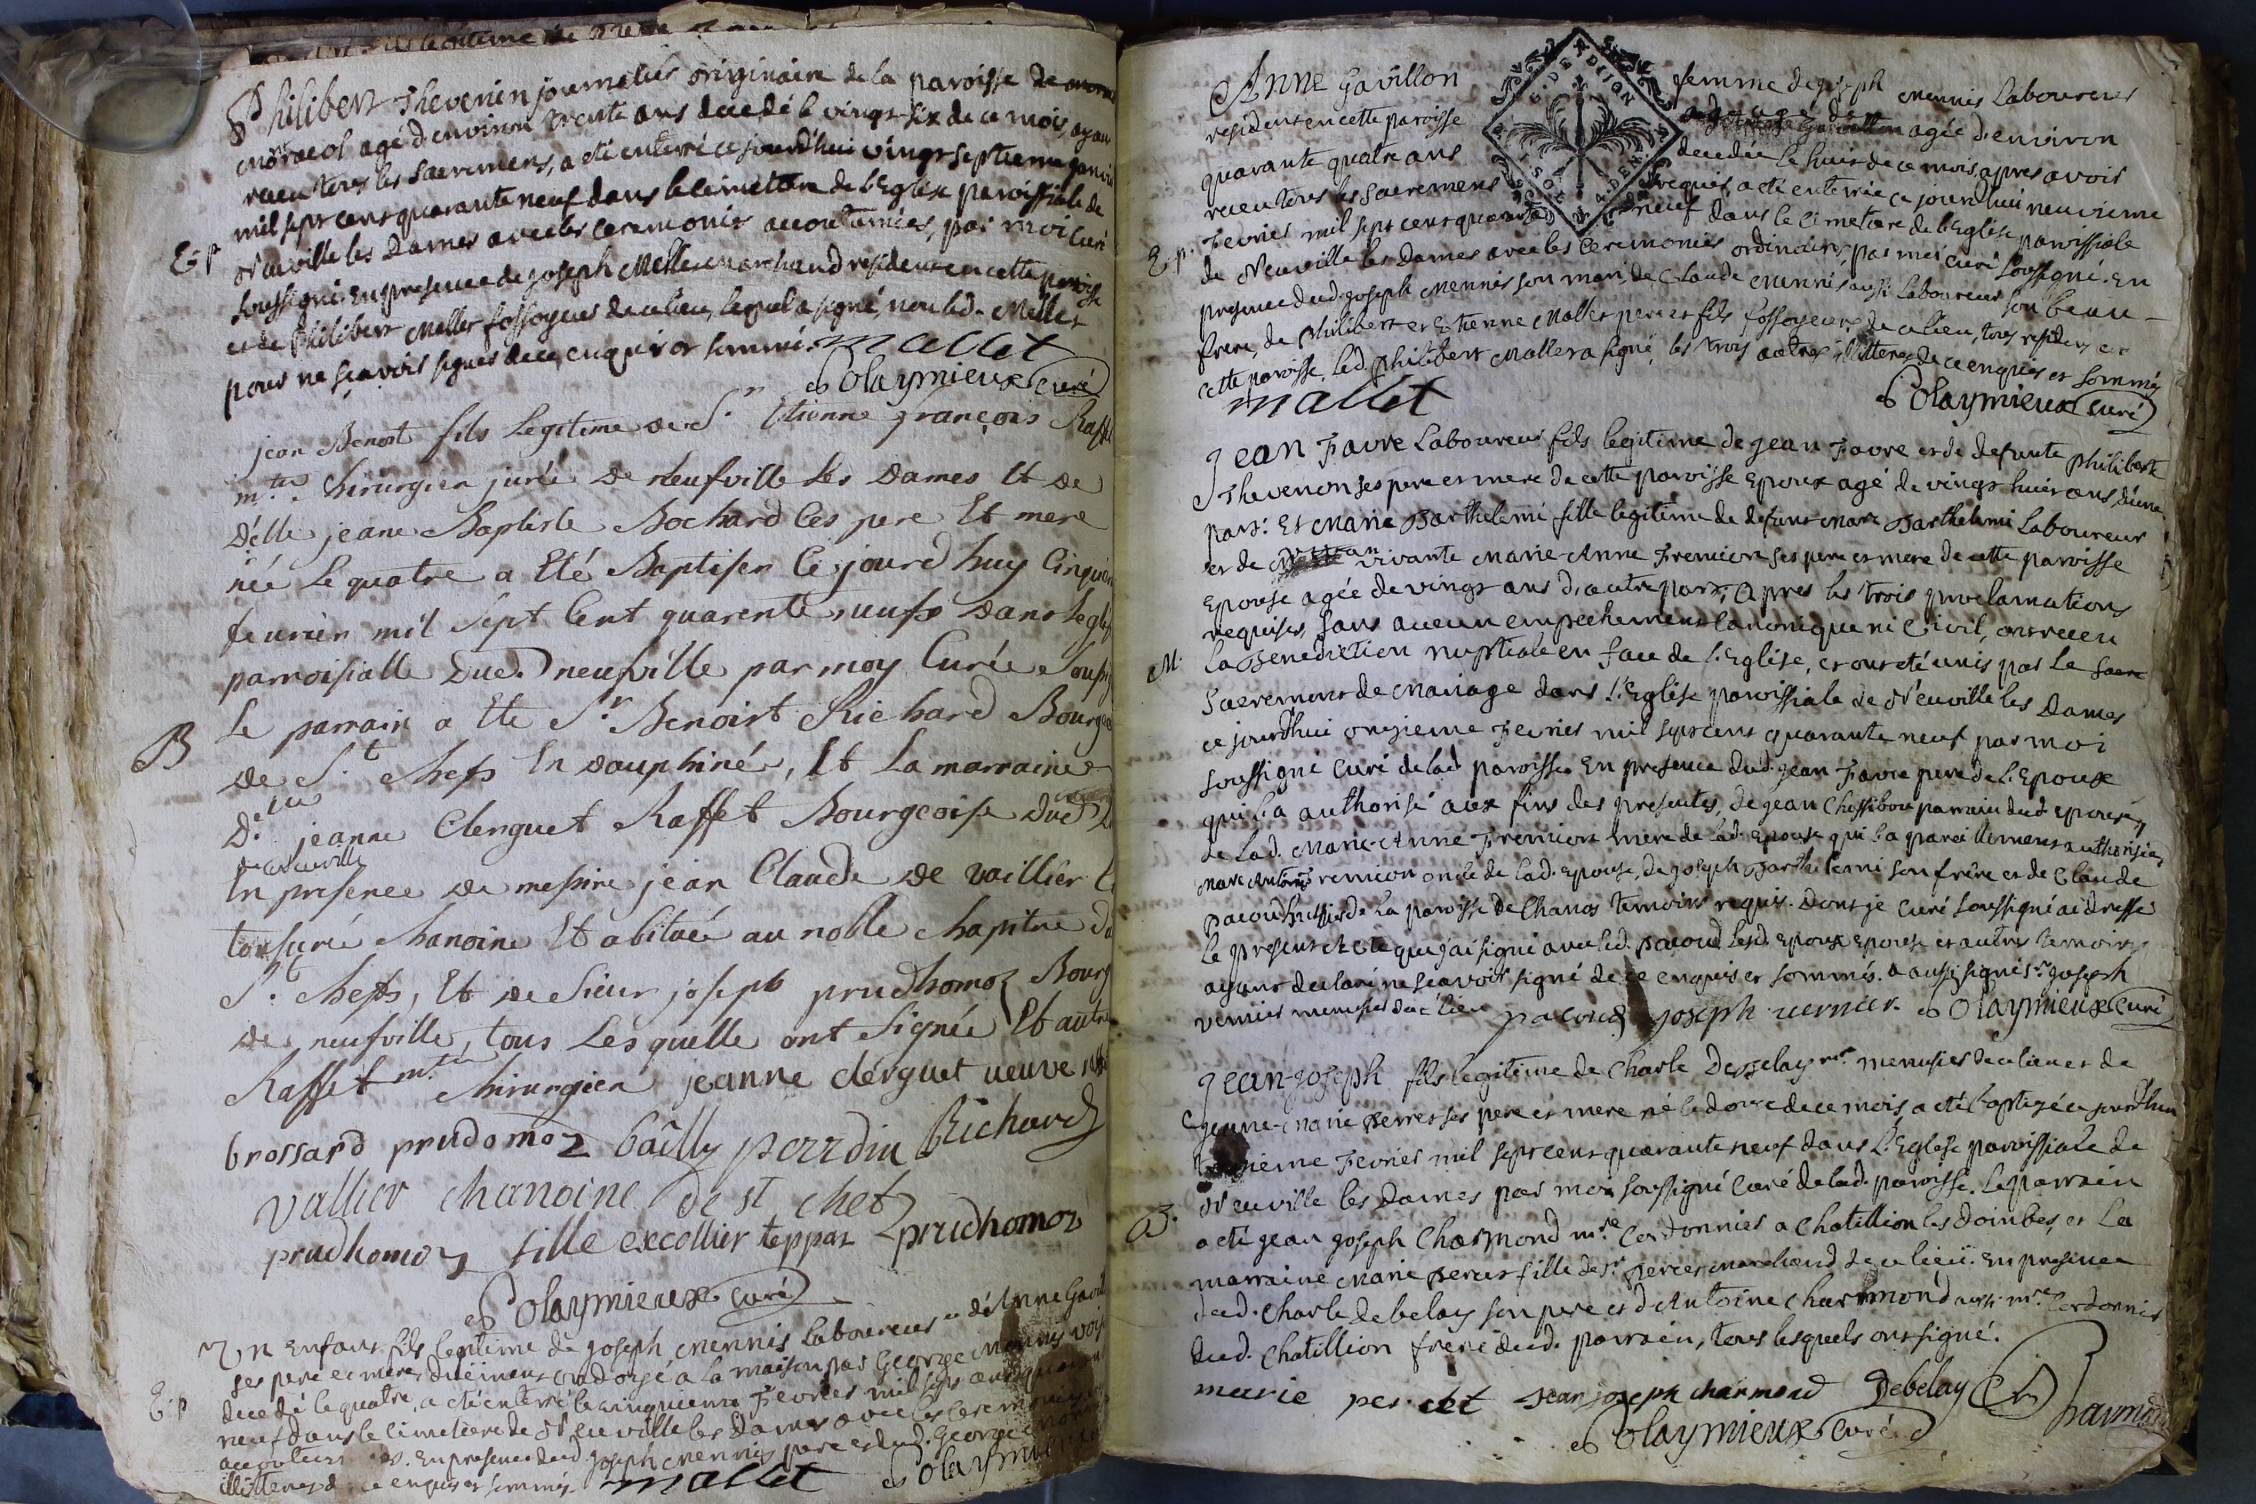 Philibert Thevenin journalier originaire de la paroisse de
agé denviron trente ans decedé le vingt-six de ce mois, ayant
receu tous les sacremens, a eté enterré ce jourd'hui vingt septieme janvier
mil sept cent quarante neuf dans le cimetiere de l'Eglise paroissiale de
Neuville les Dames avec les ceremonies accoutumées, par moi curé
E: p
soussigné. En presence de joseph Mallet marchand resident en cette paroisse
et de Philibert Mallet fossoyeur de ce lieu, lequel a signé, non led. Mallet
pour ne sçavoir signer de ce enquis et sommé.
mallet
Polaymieux curé
jean Benoit fils Legitime de Sr. Etienne françois Raffet
mtre. Chirurgien jurée de neufville les Dames Et de
Délle jeane Baptiste Bochard Ces pere Et mere
née Le quatre a Eté Baptiser Ce jourd huy Cinquieme
feurier mil Sept Cent quarente neufs dans Leglise
parroisialle Dued. neufville par moy Curée Soussigné
Le parrain a Ete Sr. Benoist Richard Bourgeois
B
de St. Chefs En dauphiné, Et La marraine
D.elle jeanne Clerguet Raffet Bourgeoise Dud.
de neuville
En presence de messire jean Claude de vaillier
tonsurée Chanoine Et abituée au noble Chapitre de
St. Chefs, Et de Sieur joseph prudhomoz Bourgeois
de neufville, tous Lesquelle ont Signée Et autre
Raffet mtre Chirurgien jeanne clerguet ueuve raffet
brossard prudomoz bailly perrdin Richard
Vallier chanoine de st chef
prudhomoz fille excollier teppaz prudhomoz
Polaymieux curé
Un Enfant fils legitime de joseph Mennis laboureur et d'Anne Gavillon
ses pere et mere, duëment ondoyé a la maison par George Monnis
decedé le quatre, a eté enterré le cinquieme Fevrier mil sept cent quarante
E: p
neuf dans le cimetiere de Neuville les Dames avec les ceremonies
accoutumées. En presence dud joseph Mennis pere et dud. George
illitterés de ce enquis et sommés.
mallet Polaymieux
Anne Gavillon femme de joseph Mennis Laboureur
resident en cette paroisse agée d'environ
G. DE DIJON
I SOL 4 DEN.
quarante quatre ans decedée le huit de ce mois, apres avoir
receu tous les sacremens requis, a eté enterrée ce jourd'hui neuvieme
Fevrier mil sept cent quarante neuf dans le cimetiere de l'Eglise paroissiale
E: p.
de Neuville les Dames avec les ceremonies ordinaires, par moi curé soussigné. En
presence dud. joseph Mennis son mari, de Claude Mennis aussi laboureur son beau-
frere, de Philibert et Etienne Mallet pere et fils fossoyeurs de ce lieu, tous residens en
cette paroisse, led. Philibert Mallet a signé, les trois autres illitterés de ce enquis et sommés
mallet Polaymieux curé
Jean Favre Laboureur fils legitime de jean Favre et de defunte philiberte
Thevenon ses pere et mere de cette paroisse Epoux agé de vingt huit ans d'une
part: Et Marie Barthelemi fille legitime de defunt Marc Barthelemi Laboureur
et de vivante Marie-Anne Fremion ses pere et mere de cette paroisse
Epouse agée de vingt ans d'autre part; Apres les trois proclamations
requises, sans aucun empechement canonique ni Civil, ont receu
M.
La Benediction nuptiale en face de l'Eglise, et ont eté unis par le Sacre
Sacrement de Mariage dans l'Eglise paroissiale de Neuville les Dames
ce jourd'hui onzieme Fevrier mil sept cent quarante neuf par moi
soussigné Curé delad. paroisse. En presence dud. jean Favre pere de l'Epoux
qui l'a authorisé aux fins des presentes, de jean Chossibou parrain dud epoux,
de Lad. Marie-Anne Fremion mere de lad. Epouse qui l'a pareillement authorisée,
Marc Antoine Fremion oncle de lad. epouse, de joseph Barthelemi son frere et de Claude
Pacoud huissier de La paroisse de Chanos temoins requis. Dont je Curé soussigné ai dressé
Le present Acte que j'ai signé avec led. pacoud, lesd. Epoux Epouse et autres temoins
ayant declaré ne sçavoir signé de ce enquis et sommés. a aussi signé sr. joseph
vernier menusier de ce lieu pacoud joseph uernier. Polaymieux curé
Jean-joseph fils legitime de Charle Debelay mre. menusier de ce lieu et de
jeanne-marie Perret ses pere et mere né le douze de ce mois, a eté baptizé ce jourd'hui
Fevrier mil sept cent quarante neuf dans L'Eglise paroissiale de
Neuville les Dames par moi soussigné Curé delad. paroisse. Le parrain
B.
a eté jean joseph Charmond mre. Cordonnier a Chatillion les doinbes, et La
marraine Marie Perret fille de sr. Perret marchand de ce lieü. En presence
dud. Charle debelay son pere et d'Antoine Charmond aussi mre Cordonnier
dud. Chatillion frere dud. parrain, tous lesquels ont signé.
marie peret Jean joseph charmond Debelay Charmond
Polaymieux curé